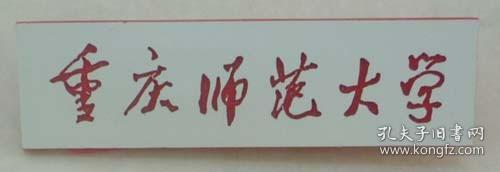 重庆师范大学
孔夫子旧书网
www.kongfz.com